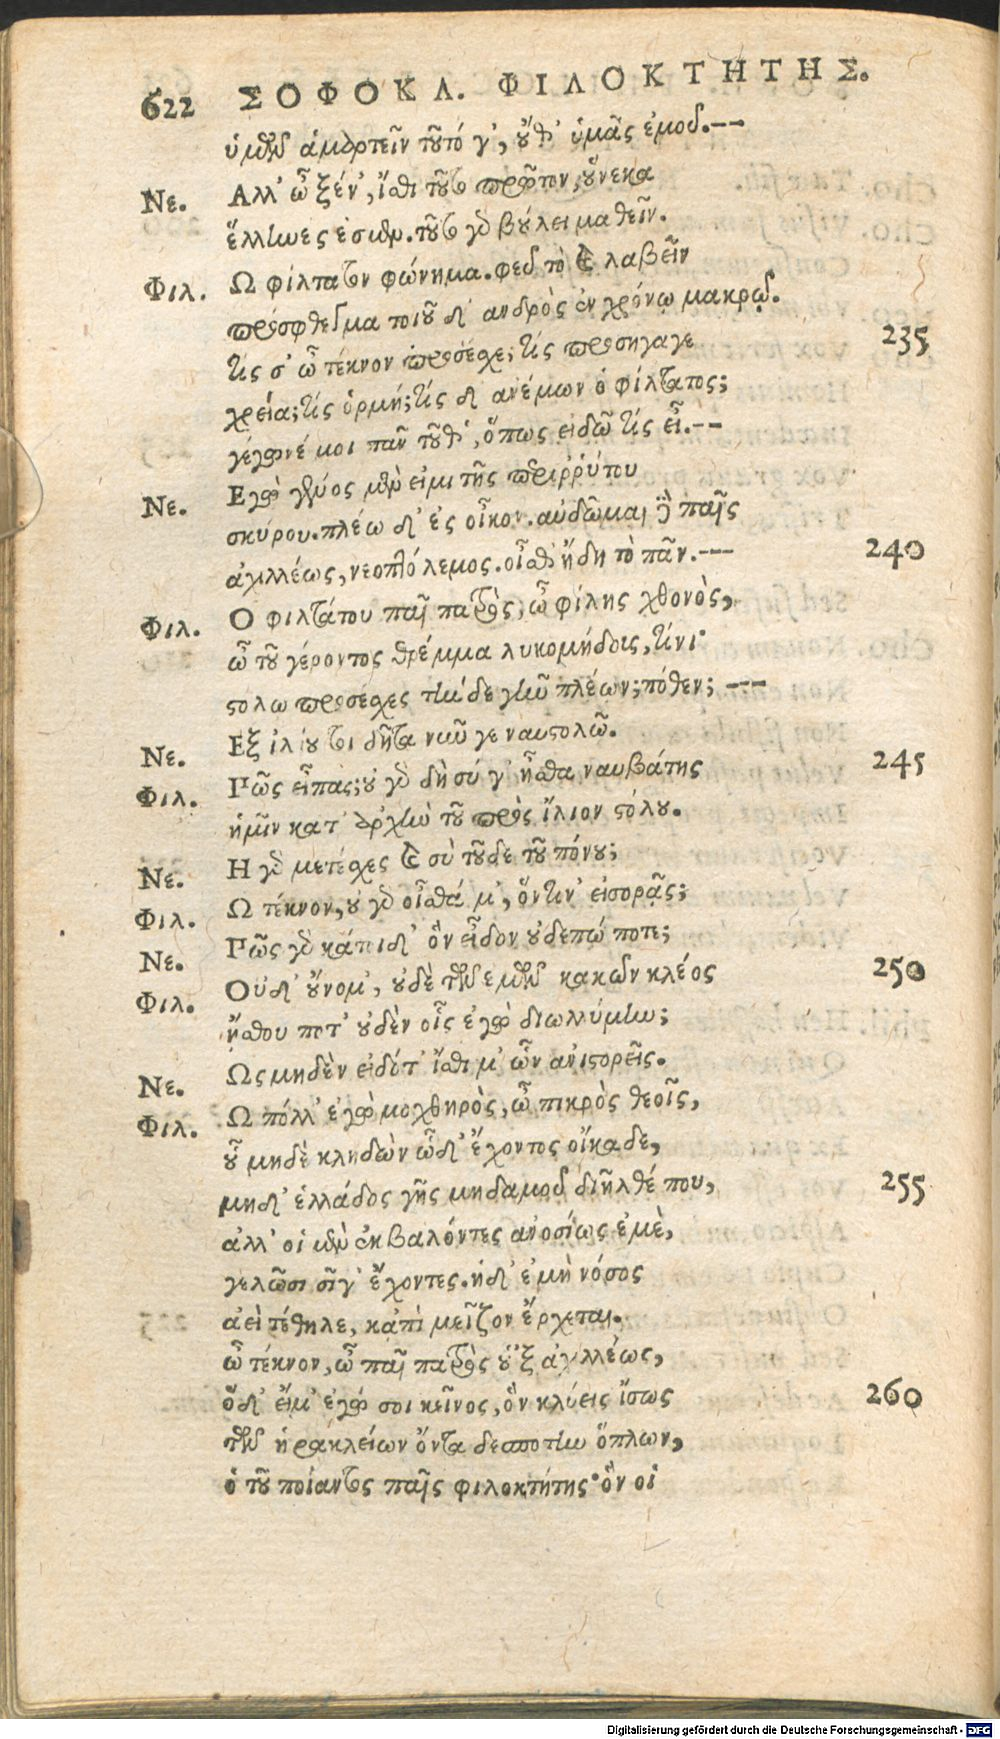 622 ΣΟΦΟΚΛ. ΦΙΛΟΚΤΗΤΗΣ.
ὑμῶν ἁμαρτεῖν τοῦτό γ', οὔθ' ὑμᾶς ἐμοῦ.---
Νε. Αλλ' ὦ ξέν', ἴσθι τοῦτο πρῶτον, οὕνεκα
ἕλληνες ἐσμεν. τοῦτο γὰρ βούλει μαθεῖν.
Φιλ. Ω φίλτατον φώνημα. φεῦ τὸ καὶ λαβεῖν
πρόσφθεγμα τοιοῦδ' ανδρὸς ἐν χρόνῳ μακρῷ.
τίς σ' ὦ τέκνον προσέσχε; τίς προσήγαγε 235
χρεία; τίς ὁρμή; τίς δ' ανέμων ὁ φίλτατος;
γέγωνέ μοι πᾶν τοῦθ', ὅπως ειδῶ τίς εἶ.---
Νε. Εγὼ γένος μέν εἰμι τῆς περιῤῥύτου
σκύρου. πλέω δ' ἐς οἶκον. αὐδῶμαι δὲ παῖς
ἀχιλλέως, νεοπτόλεμος. οἶσθ' ἤδη τὸ πᾶν.--- 240
Φιλ. Ο φιλτάτου παῖ πατρὸς, ὦ φίλης χθονὸς,
ὦ τοῦ γέροντος θρέμμα λυκομήδοις, τίνι
στόλω προσέσχες τήνδε γῆν πλέων; πόθεν; ---
Νε. Εξ ἰλίου τοι δῆτα νῦν γε ναυστολῶ.
Φιλ. Πῶς εἶπας; οὐ γὰρ δὴ σύ γ' ἦσθα ναυβάτης 245
ἡμῖν κατ' ἀρχὴν τοῦ πρὸς ἴλιον στόλου.
Νε. Η γὰρ μετέσχες καὶ σὺ τοῦδε τοῦ πόνου;
Φιλ. Ω τέκνον, οὐ γὰρ οἶσθά μ', ὅντιν' εἰσορᾷς;
Νε. Πῶς γὰρ κάτοιδ' ὃν εἶδον οὐδεπώποτε;
Φιλ. Οὐδ' οὔνομ', οὐδὲ τῶν ἐμῶν κακῶν κλέος 250
ᾔσθου ποτ' οὐδὲν οἷς ἐγὼ διωλλύμην;
Νε. Ως μηδὲν ειδότ' ἴσθι μ' ὧν ανιστορεῖς.
Φιλ. Ω πόλλ' ἐγὼ μοχθηρὸς, ὦ πικρὸς θεοῖς,
οὗ μηδὲ κληδὼν ὧδ' ἔχοντος οἴκαδε,
μηδ' ἑλλάδος γῆς μηδαμοῦ διῆλθέ που, 255
ἀλλ' οἱ μὲν ἐκβαλόντες ανοσίως ἐμὲ,
γελῶσι σῖγ' ἔχοντες. ἡδ' ἐμὴ νόσος
ἀεὶ τέθηλε, κἀπὶ μεῖζον ἔρχεται.
ὦ τέκνον, ὦ παῖ πατρὸς οὑξ ἀχιλλέως,
ὅδ' εἴμ' ἐγώ σοι κεῖνος, ὃν κλύεις ἴσως 260
τῶν ἡρακλείων ὄντα δεσποτην ὅπλων,
ὁ τοῦ ποίαντος παῖς φιλοκτήτης· ὃν οἱ
Digitalisierung gefördert durch die Deutsche Forschungsgemeinschaft - DFG